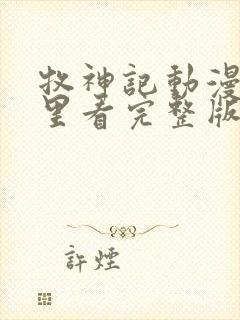 牧神記動漫
里看完整版
許煙